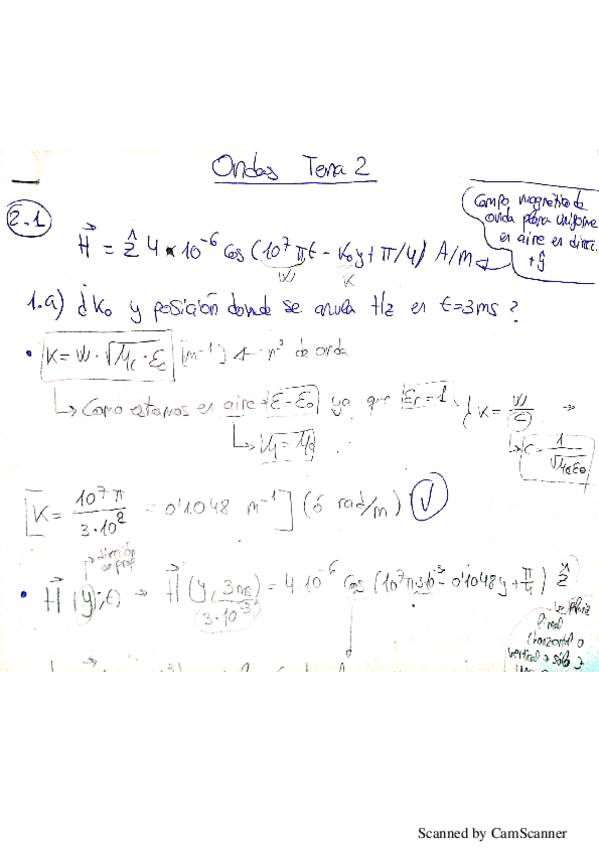 Ondas Tema 2
Campo magnético de
onda plana uniforme
en aire en direc.
+ŷ
2.1
H⃗ = ẑ 4 · 10⁻⁶ cos (10⁷ πt - K₀y + π/4) A/m
W K
1.a) ¿K₀ y posición donde se anula Hz en t=3ms?
• K = W · √μc · εc [m⁻¹] ← nº de onda
↳ Como estamos en aire ε=ε₀ ya que εr=1 K = W/C →
↳ μ=μ₀ ↳ C = 1/√μ₀ε₀
[K = 10⁷ π / 3·10⁸ = 0'1048 m⁻¹] (ó rad/m) √
dirección
de prop
• H⃗ (y,t) → H⃗ (y, 3ms) = 4·10⁻⁶ cos (10⁷π·3·10⁻³ - 0'1048y + π/4) ẑ
3·10⁻³
lineal
(horizontal o
vertical → sólo
Scanned by CamScanner